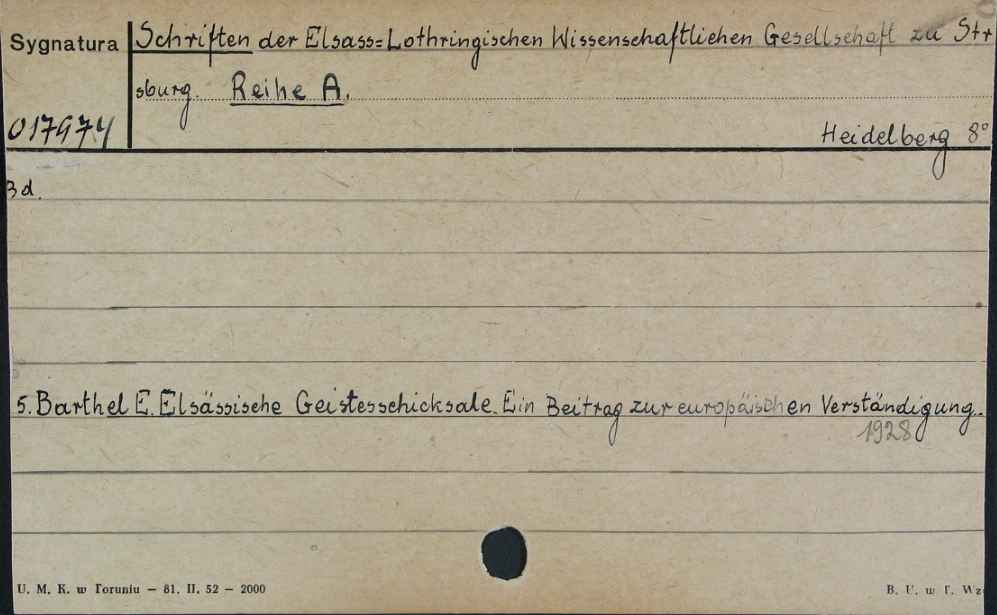 Sygnatura
Schriften der Elsass=Lothringischen Wissenschaftlichen Gesellschaft zu Str
sburg. Reihe A.
017974
Heidelberg 8°
Bd.
5. Barthel E. Elsässische Geistesschicksale. Ein Beitrag zur europäischen Verständigung.
1928
U. M. K. w Toruniu — 81. II. 52 — 2000
B. U. w T. Wz